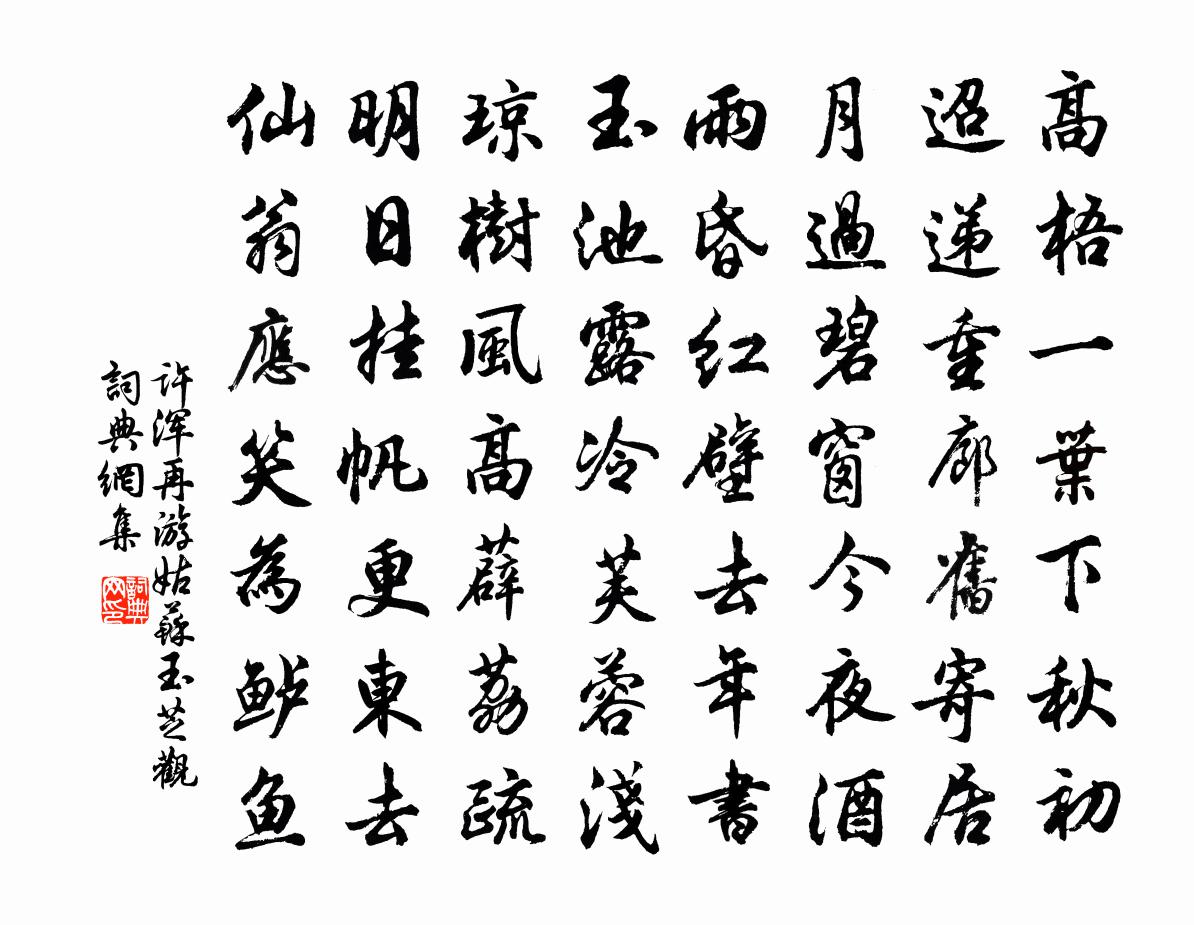 高梧一葉下秋初
迢递重廊舊寄居
月過碧窗今夜酒
雨昏红壁去年書
玉池露冷芙蓉淺
琼樹風高薜荔疏
明日挂帆更東去
仙翁應笑為鲈魚
许浑再游姑蘇玉芝觀
詞典網集
詞典网印